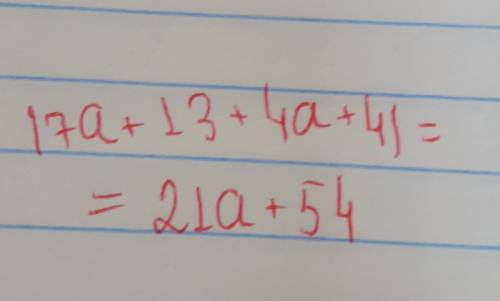 17a + 13 + 4a + 41 =
= 21a + 54